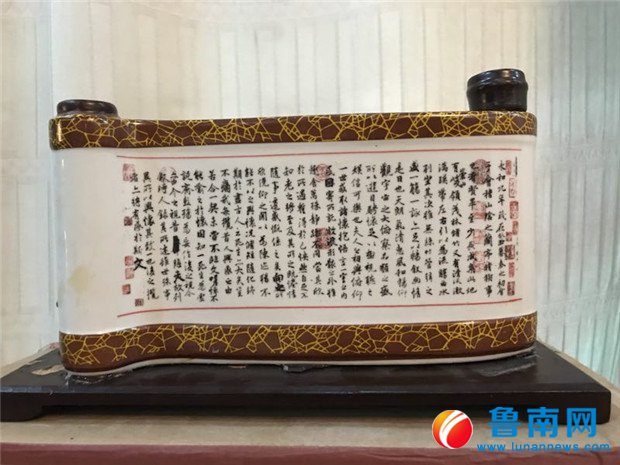 永和九年歲在癸丑暮春之初會
于會稽山陰之蘭亭脩稧事
也群賢畢至少長咸集此地
有崇山峻領茂林脩竹又有清流激
湍暎帶左右引以為流觴曲水
列坐其次雖無絲竹管弦之
盛一觴一詠亦足以暢敘幽情
是日也天朗氣清惠風和暢仰
觀宇宙之大俯察品類之盛
所以遊目騁懷足以極視聽之
娛信可樂也夫人之相與俯仰
一世或取諸懷抱悟言一室之內
或因寄所託放浪形骸之外雖
趣舍萬殊靜躁不同當其欣
於所遇暫得於己怏然自足不
知老之將至及其所之既惓情
隨事遷感慨係之矣向之所
欣俛仰之閒以為陳迹猶不
能不以之興懷況脩短隨化終
期於盡古人云死生亦大矣豈
不痛哉每攬昔人興感之由
若合一契未嘗不臨文嗟悼不
能喻之於懷固知一死生為虛
誕齊彭殤為妄作後之視今
亦由今之視昔悲夫故列
敘時人錄其所述雖世殊事
異所以興懷其致一也後之攬
者亦將有感於斯文
鲁南网
www.lunannews.com